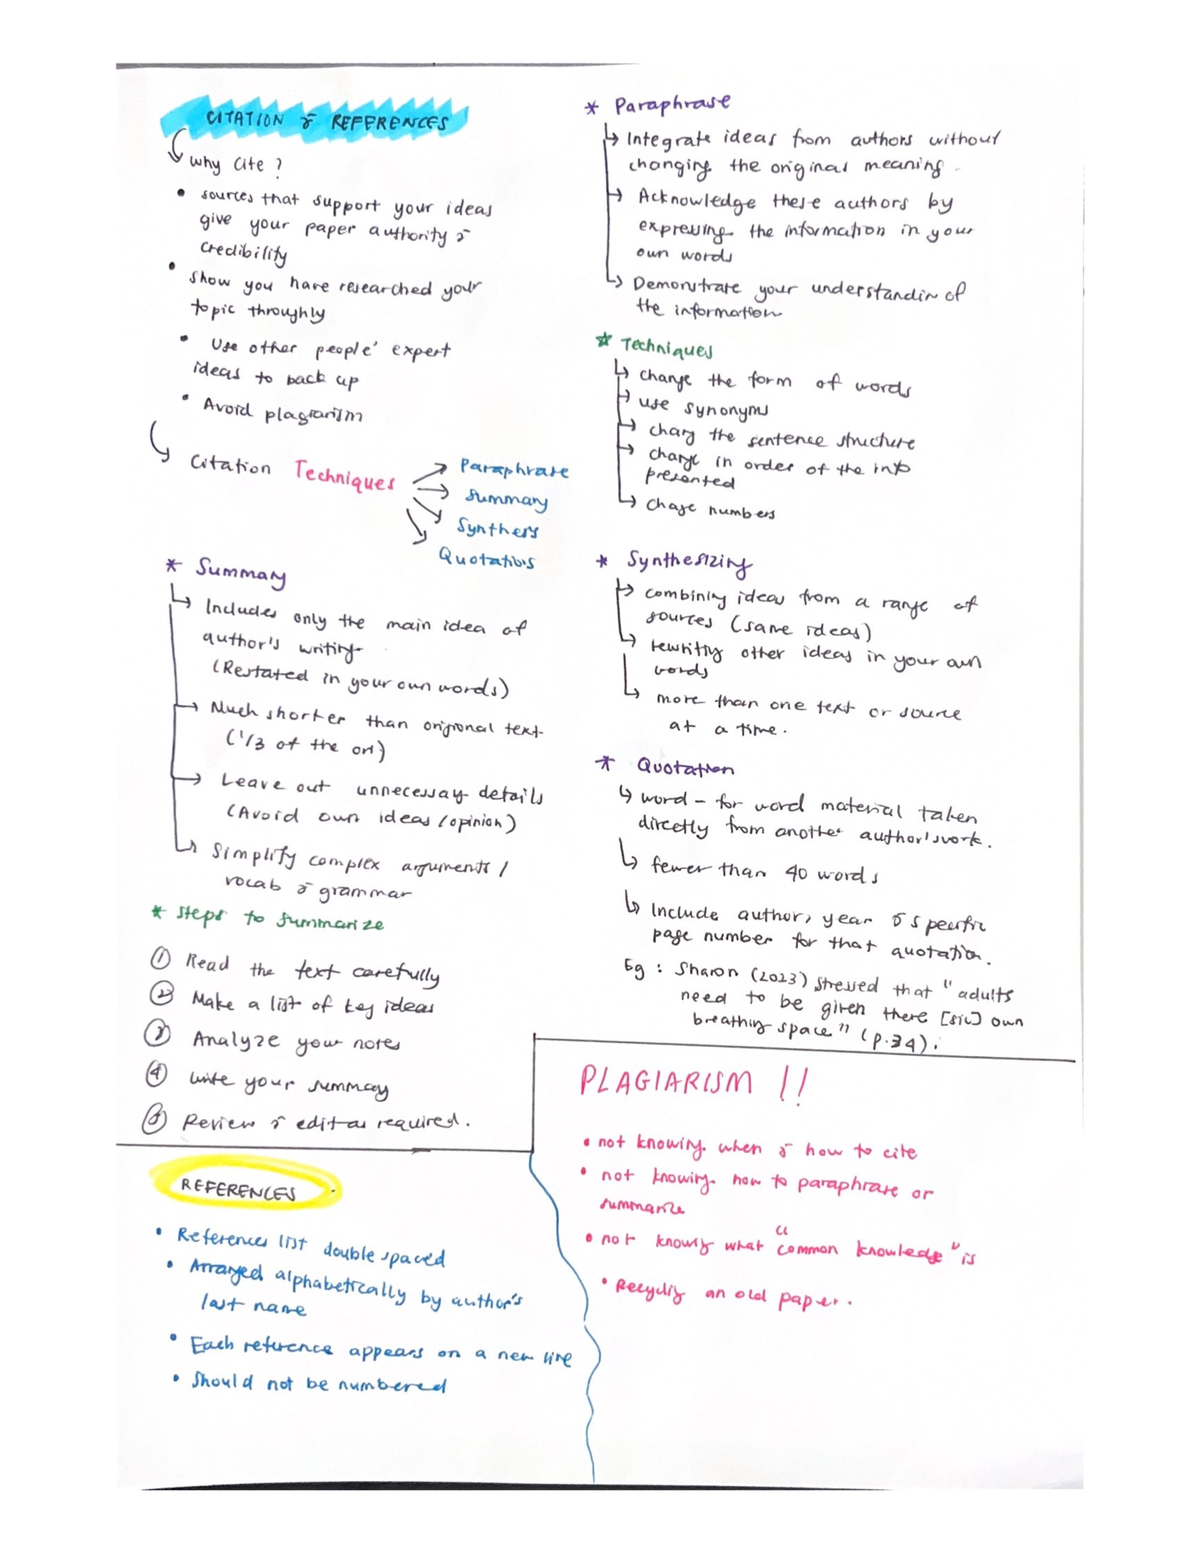 CITATION & REFERENCES
Why cite ?
• sources that support your ideas
give your paper authority &
credibility
• show you have researched your
topic throughly
• Use other people' expert
ideas to back up
• Avoid plagiarism
Citation Techniques
Paraphrase
Summary
Synthesis
Quotations
* Summary
Includes only the main idea of
author's writing
(Restated in your own words)
Much shorter than original text
(1/3 of the ori)
Leave out unnecessay details
(Avoid own ideas/opinion)
Simplify complex arguments/
vocab & grammar
* Steps to summarize
① Read the text carefully
② Make a list of key ideas
③ Analyze your notes
④ write your summary
⑤ Review & edit as required.
REFERENCES
• References list double spaced
• Arranged alphabetically by author's
last name
• Each reference appears on a new line
• Should not be numbered
* Paraphrase
Integrate ideas from authors without
changing the original meaning.
Acknowledge these authors by
expressing the information in your
own words
Demonstrate your understandin of
the information
* Techniques
change the form of words
use synonyms
chang the sentence structure
change in order of the info
presented
chage numbers
* Synthesizing
combining ideas from a range of
sources (same ideas)
rewriting other ideas in your own
words
more than one text or source
at a time.
* Quotation
word-for word material taken
directly from another author's work.
fewer than 40 words
Include author, year & specific
page number for that quotation.
Eg : Sharon (2023) stressed that "adults
need to be given there [sic] own
breathing space" (p.34).
PLAGIARISM !!
• not knowing when & how to cite
• not knowing how to paraphrase or
summarize
• not knowing what "common knowledge" is
• Recycling an old paper.